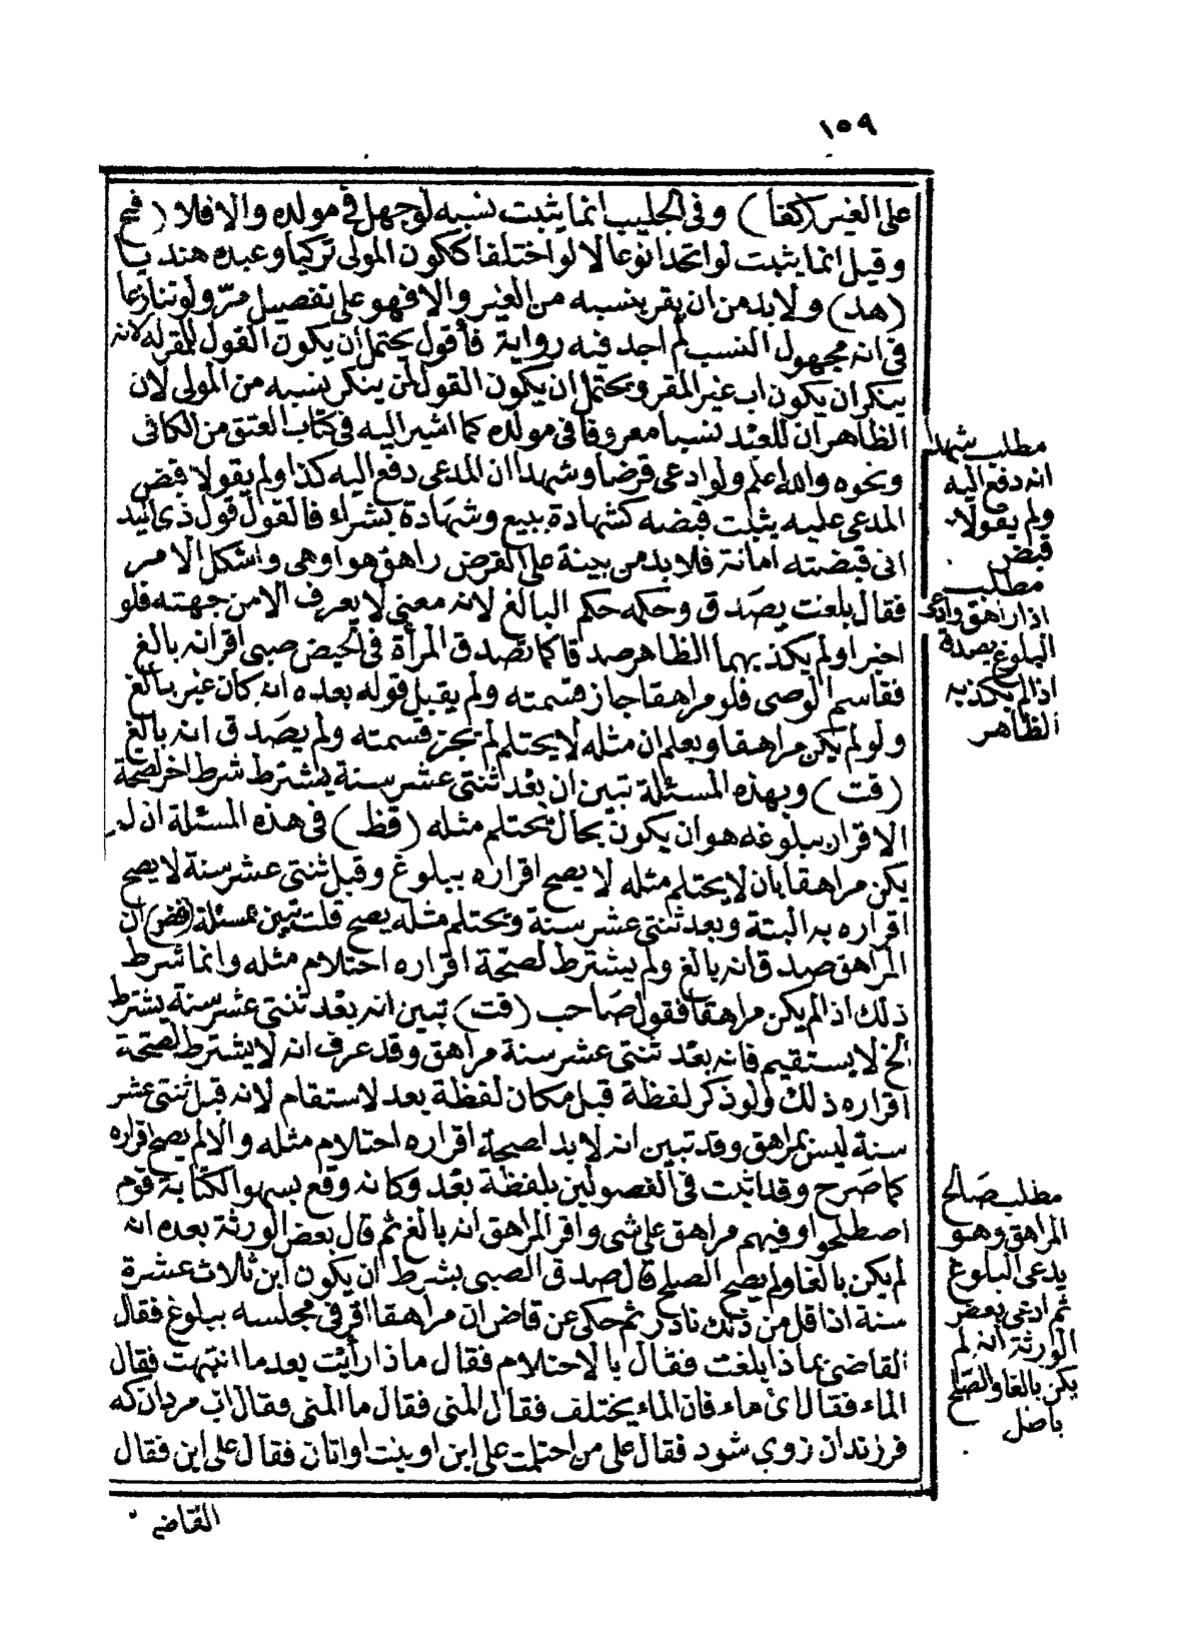 ١٥٩
على الغير (كفأ) وفى الجليب انما يثبت نسبه لوجهل فى مولده والا فلا (فج
وقيل انما يثبت لو اتحدا نوعا لا لو اختلفا ككون المولى تركيا وعبده هنديا
(هد) ولابد من ان يقر بنسبه من الغير والا فهو على تفصيل مرّ ولو تنازعا
فى انه مجهول النسب لم اجد فيه رواية فأقول يحتمل ان يكون القول للمقر له لانه
ينكر ان يكون اب غير المقر ويحتمل ان يكون القول لمن ينكر نسبه من المولى لان
الظاهر ان للعبد نسبا معروفا فى مولده كما اشير اليه فى كتاب العتق من الكافى
ونحوه والله اعلم ولو ادعى قرضا وشهدا ان المدعى دفع اليه كذا ولم يقولا قبض
المدعى عليه يثبت قبضه كشهادة ببيع وشهادة بشراء فالقول قول ذى اليد
انى قبضته امانة فلابد من بينة على القرض راهق هو او هى واشكل الامر
فقال بلغت يصدق وحكمه حكم البالغ لانه معنى لا يعرف الا من جهته فلو
اخبرا ولم يكذبهما الظاهر صدقا كما تصدق المرأة فى الحيض صبى اقر انه بالغ
فقاسم الوصى فلو مراهقا جاز قسمته ولم يقبل قوله بعده انه كان غير بالغ
ولو لم يكن مراهقا ويعلم ان مثله لا يحتلم لم يجز قسمته ولم يصدق انه بالغ
(قت) وبهذه المسئلة تبين ان بعد ثنتى عشر سنة يشترط شرط اخر لصحة
الاقرار ببلوغه هو ان يكون بحال يحتلم مثله (قظ) فى هذه المسئلة ان لم
يكن مراهقا بأن لا يحتلم مثله لا يصح اقراره ببلوغ وقبل ثنتى عشر سنة لا يصح
اقراره به البتة وبعد ثنتى عشر سنة ويحتلم مثله يصح قلت تبين بمسئلة (فض) ان
المراهق صدق انه بالغ ولم يشترط لصحّة اقراره احتلام مثله وانما شرط
ذلك اذا لم يكن مراهقا فقول صاحب (قت) تبين انه بعد ثنتى عشر سنة يشترط
الخ لا يستقيم فانه بعد ثنتى عشر سنة مراهق وقد عرف انه لا يشترط لصحّة
اقراره ذلك ولو ذكر لفظة قبل مكان لفظة بعد لاستقام لانه قبل ثنتى عشر
سنة ليس بمراهق وقد تبين انه لابد لصحة اقراره احتلام مثله والا لم يصح اقراره
كما صرح وقد اثبت فى الفصولين بلفظة بعد وكانه وقع بسهو الكتابة قوم
اصطلحوا وفيهم مراهق على شى واقر المراهق انه بالغ ثم قال بعض الورثة بعده انه
لم يكن بالغا ولم يصح الصلح قال صدق الصبى بشرط ان يكون ابن ثلاث عشرة
سنة اذ اقل من ذلك نادر ثم حكى عن قاض ان مراهقا اقر فى مجلسه ببلوغ فقال
القاضى بماذا بلغت فقال بالاحتلام فقال ماذا رأيت بعد ما انتبهت فقال
الماء فقال اى ماء فان الماء يختلف فقال المنى فقال ما المنى فقال اب مردان كه
فرزندان زوى شود فقال على من احتلمت على ابن او بنت او اتان فقال على ابن فقال
القاضى
مطلب شهدا
انه دفع اليه
ولم يقولا
قبض
مطلب
اذا راهق وادعى
البلوغ يصدق
اذا لم يكذبه
الظاهر
مطلب صالح
المراهق وهو
يدعى البلوغ
ثم ادعى بعض
الورثة انه لم
يكن بالغا والصلح
باطل